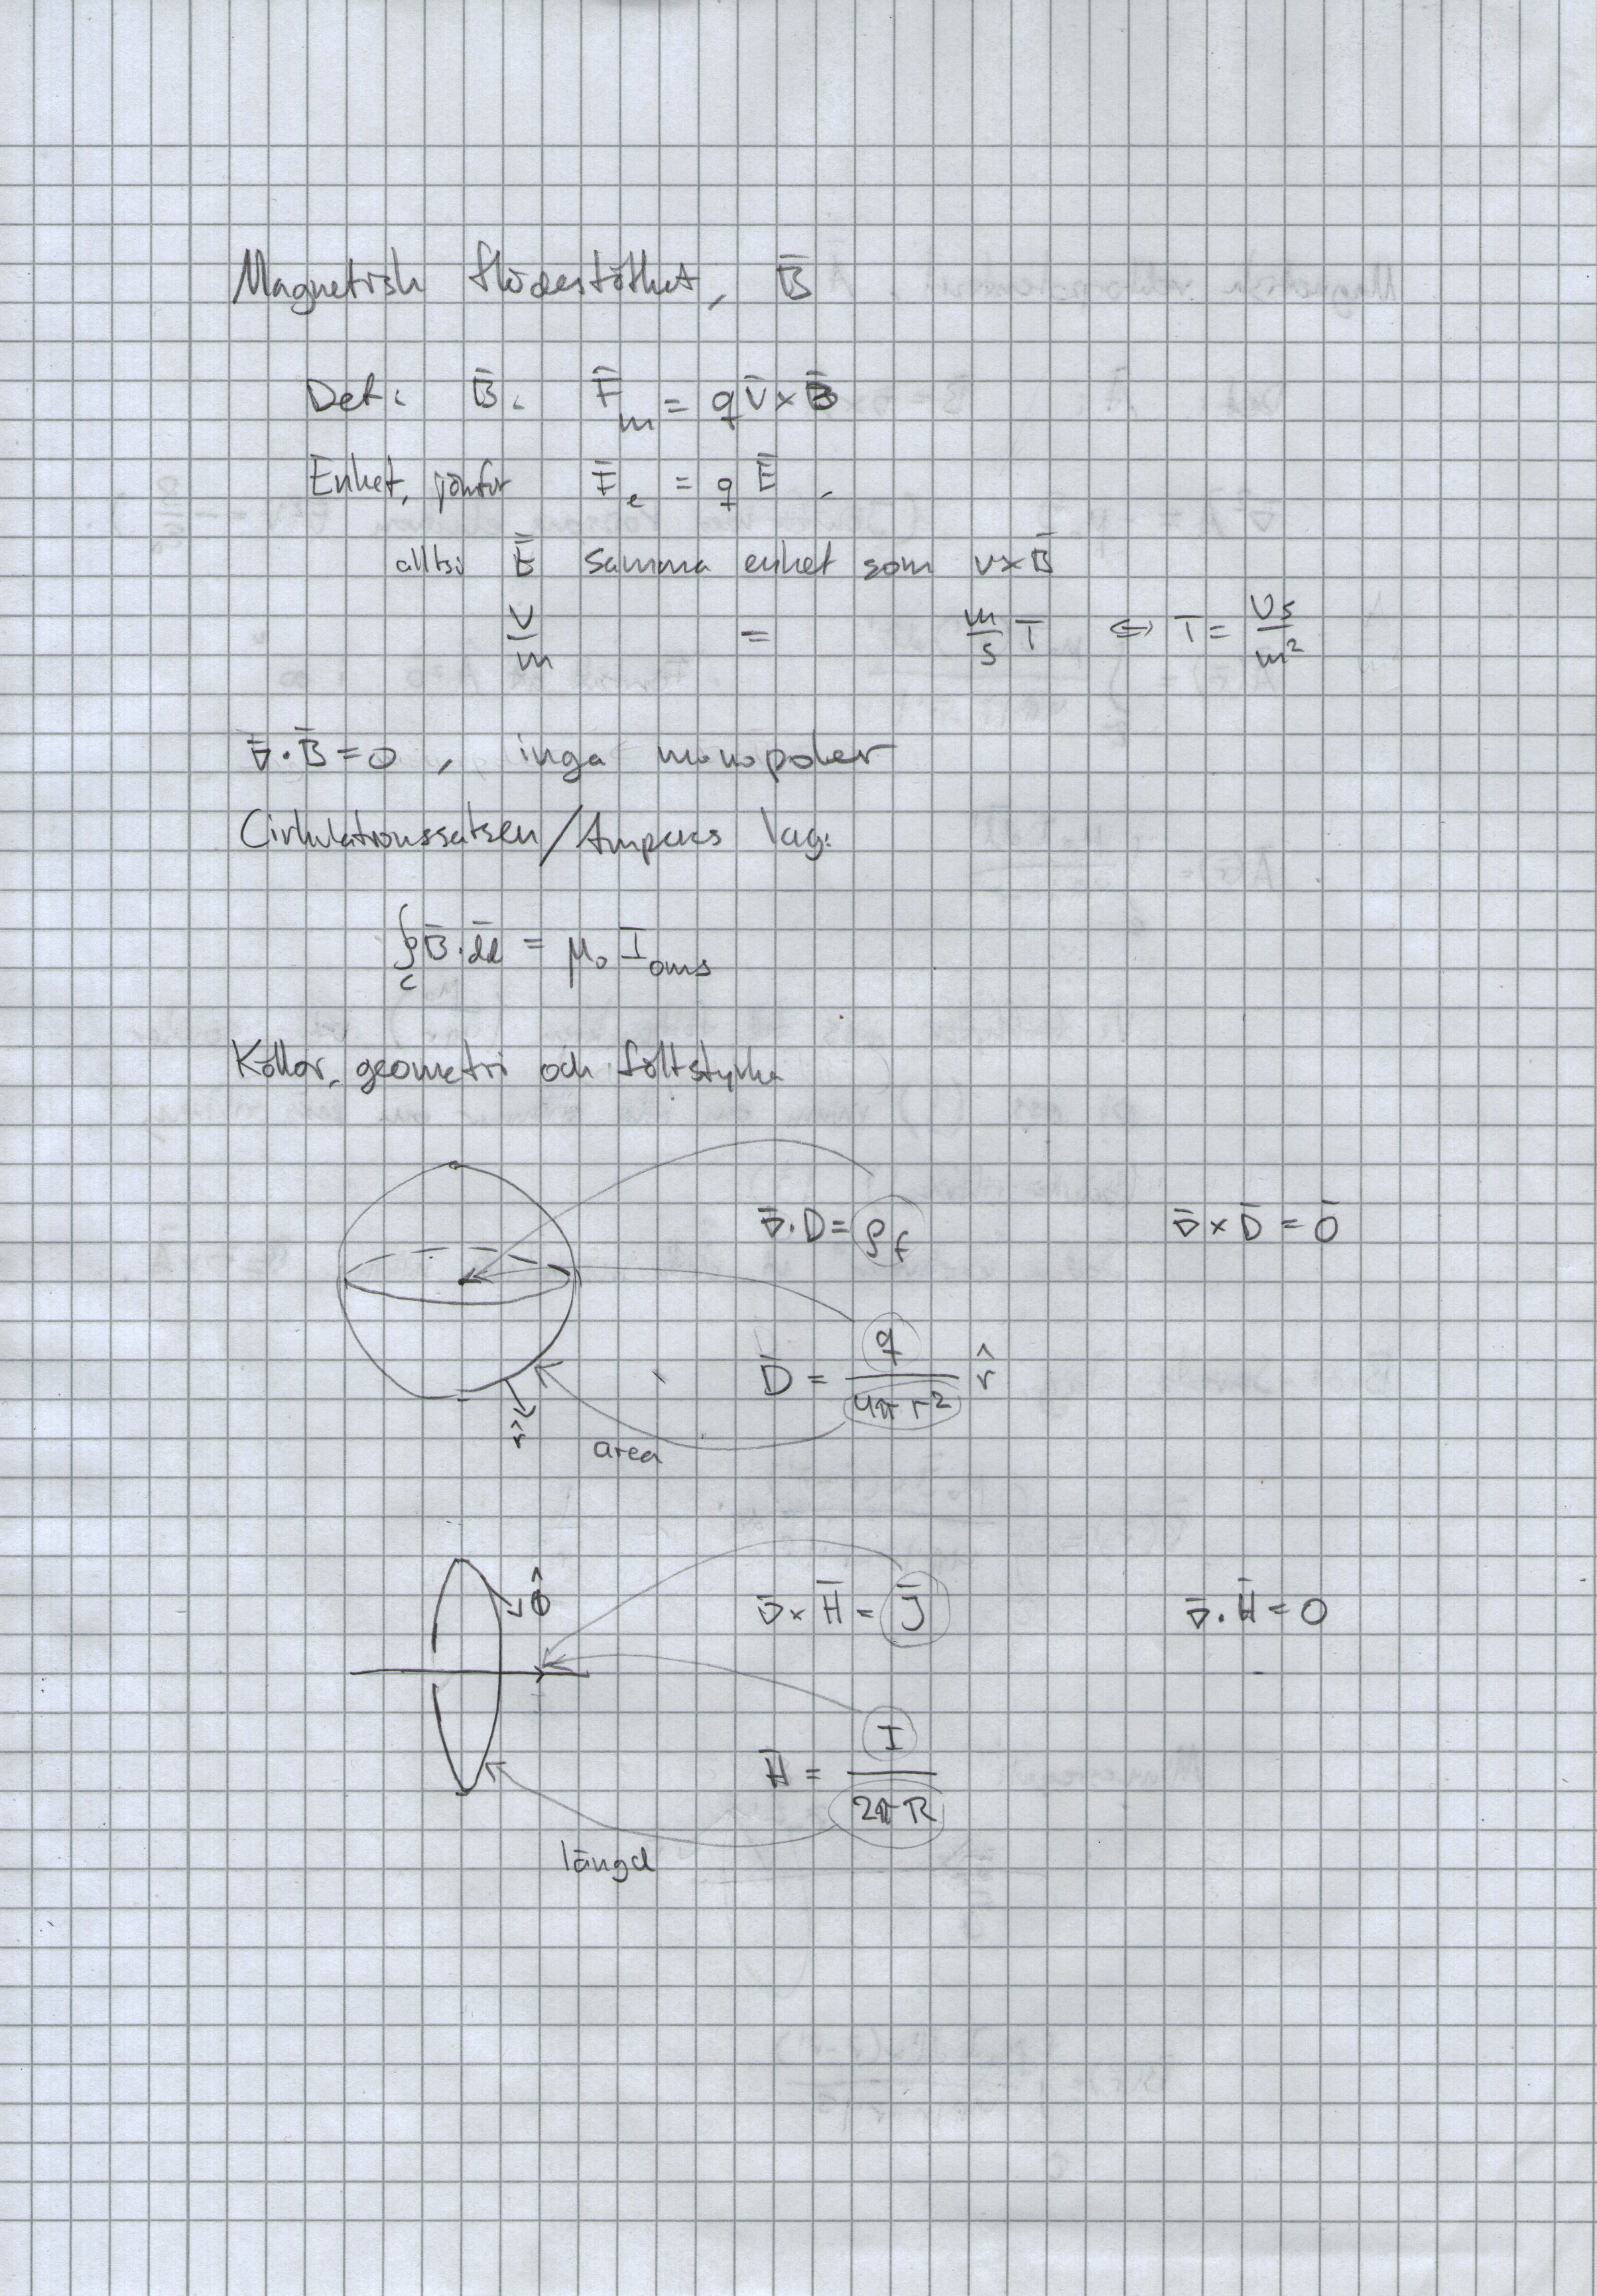 Magnetisk flödestäthet, B̄
Def: B̄: F̄_m = q v̄ × B̄
Enhet, jämför F̄_e = q Ē,
alltså Ē samma enhet som v × B̄
V/m = m/s T ⇔ T = Vs/m²
∇̄ · B̄ = 0, inga monopoler
Cirkulationssatsen/Amperes lag:
∮_C B̄ · d̄l = μ₀ I_oms
Källor, geometri och fältstyrka
∇̄ · D = ρ_f ∇̄ × D̄ = 0̄
D̄ = q / 4πr² r̂
r̂
area
θ̂
∇̄ × H̄ = J̄ ∇̄ · H̄ = 0
H̄ = I / 2πR
längd